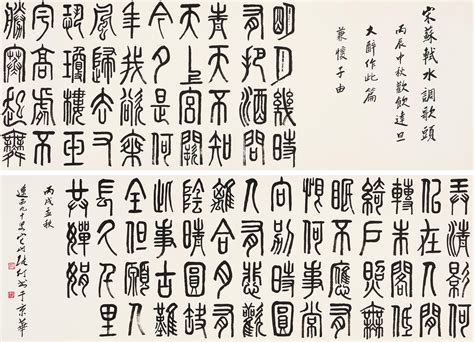 宋蘇軾水調歌頭
丙辰中秋歡飲達旦
大醉作此篇
兼懷子由
明月幾時
有把酒問
青天不知
天上宮闕
今夕是何
年我欲乘
風歸去又
恐瓊樓玉
宇高處不
勝寒起舞
弄清影何
似在人間
轉朱閣低
綺戶照無
眠不應有
恨何事長
向別時圓
人有悲歡
離合月有
陰晴圓缺
此事古難
全但願人
長久千里
共嬋娟
丙戌孟秋
九十叟張仃書于京華